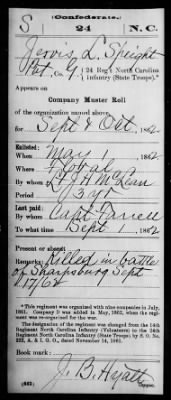 (Confederate.)
S 24 N. C.
Jervis L. Speight
Pvt, Co. G, 24 Reg't North Carolina
Infantry (State Troops).*
Appears on
Company Muster Roll
of the organization named above,
for Sept & Oct, 1862
Enlisted:
When May 1, 1862
Where
By whom Lt J H McLean
Period 3 yr
Last paid:
By whom Capt
To what time Sept 1, 1862
Present or absent
Remarks: Killed in battle
of Sharpsburg Sept
17/62
*This regiment was organized with nine companies in July,
1861. Company D was added in May, 1862, when the regi-
ment was re-organized.
The designation of the regiment was changed from the 14th
Regiment North Carolina Infantry (Volunteers) to the 24th
Regiment North Carolina Infantry (State Troops) by S. O. No.
222, A. & I. G. O., dated November 14, 1861.
Book mark:
J. B. Hyatt
(642) Copyist.